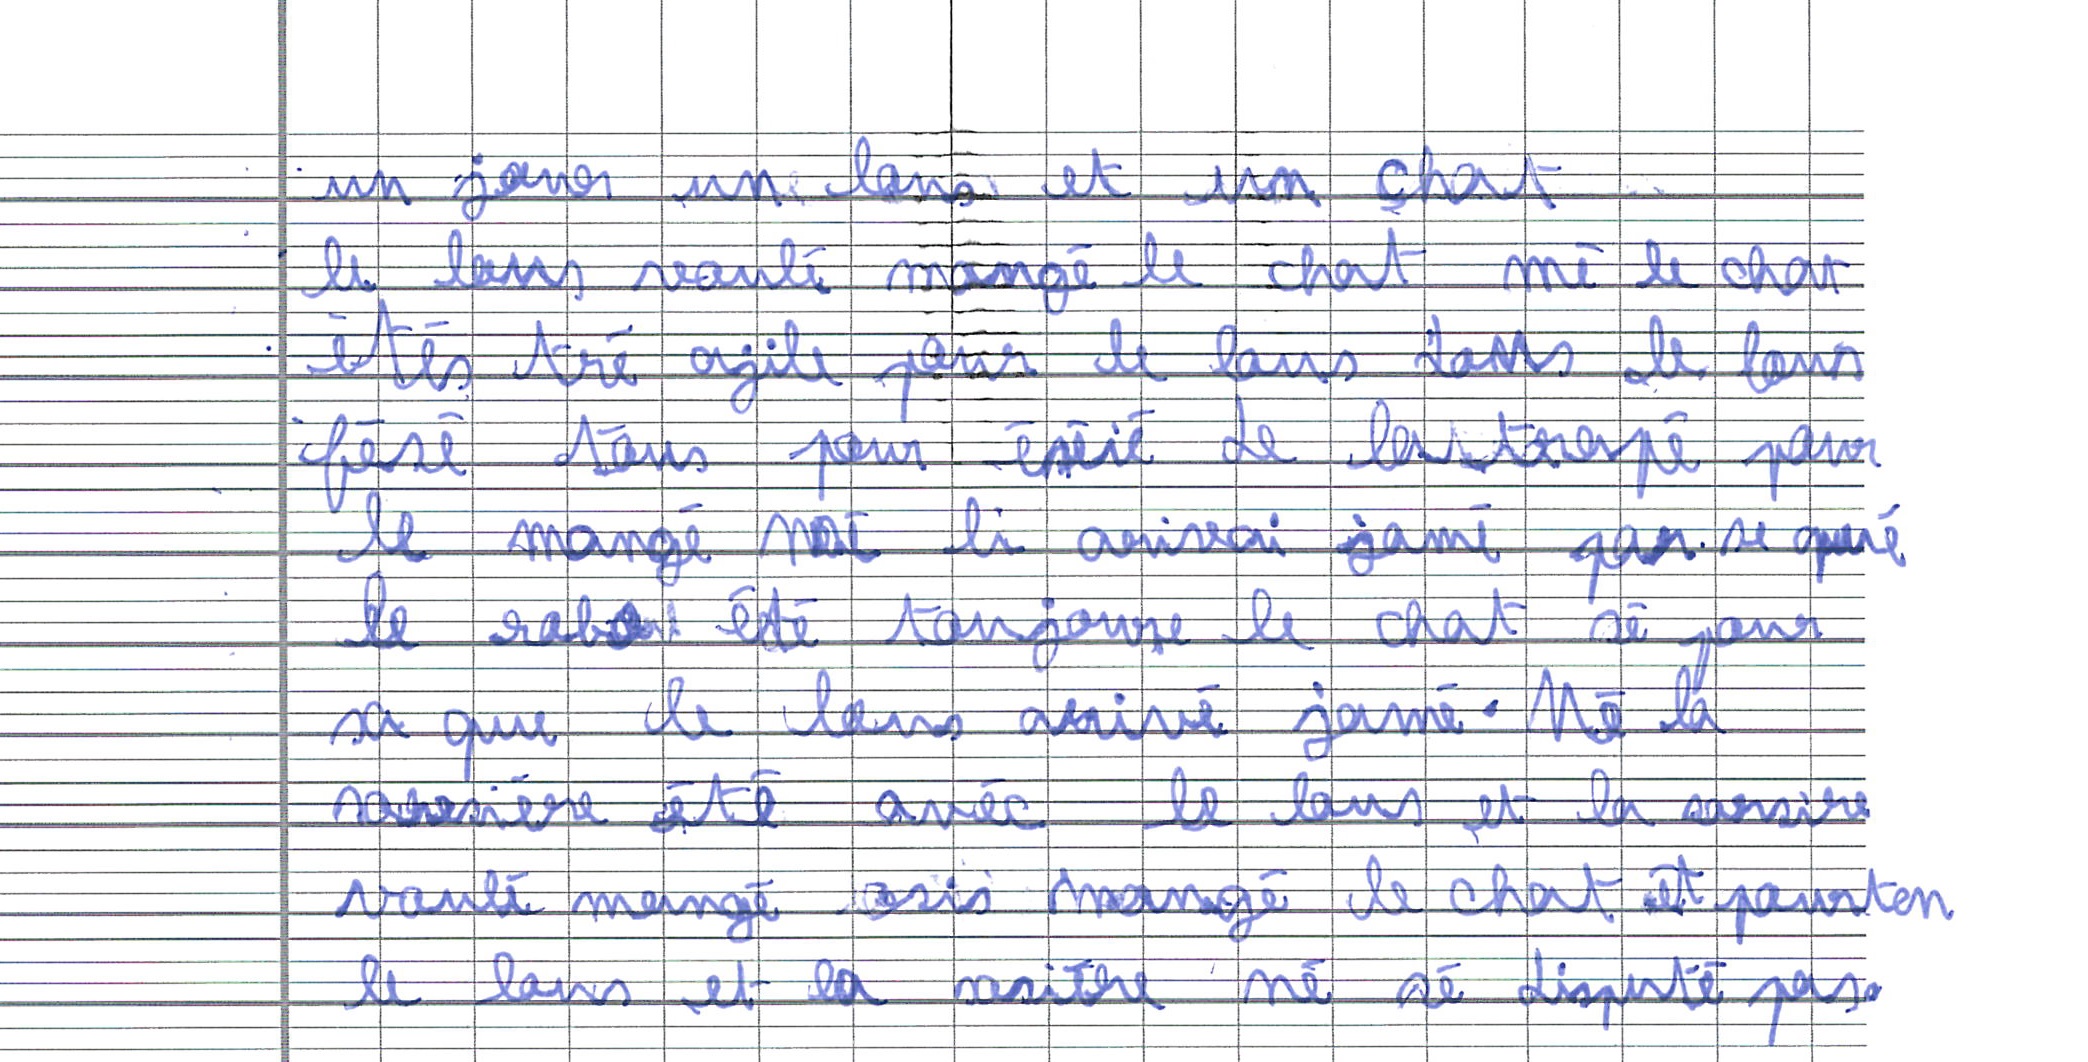 un jour un lous et un chat
le lous voulé mangé le chat mé le chat
étés tré agile pour le lous dons le lous
fésé tous pour éséié de lautrapé pour
le mangé mé li arivai jamé par se que
le rabo été toujoure le chat sé pour
sa que le lous arivé jamé. Mé la
sorsière été avéc le lous et la sorsire
voulé mangé osis mangé le chat ét pourton
le lous et la sositère né sé disputé pas.